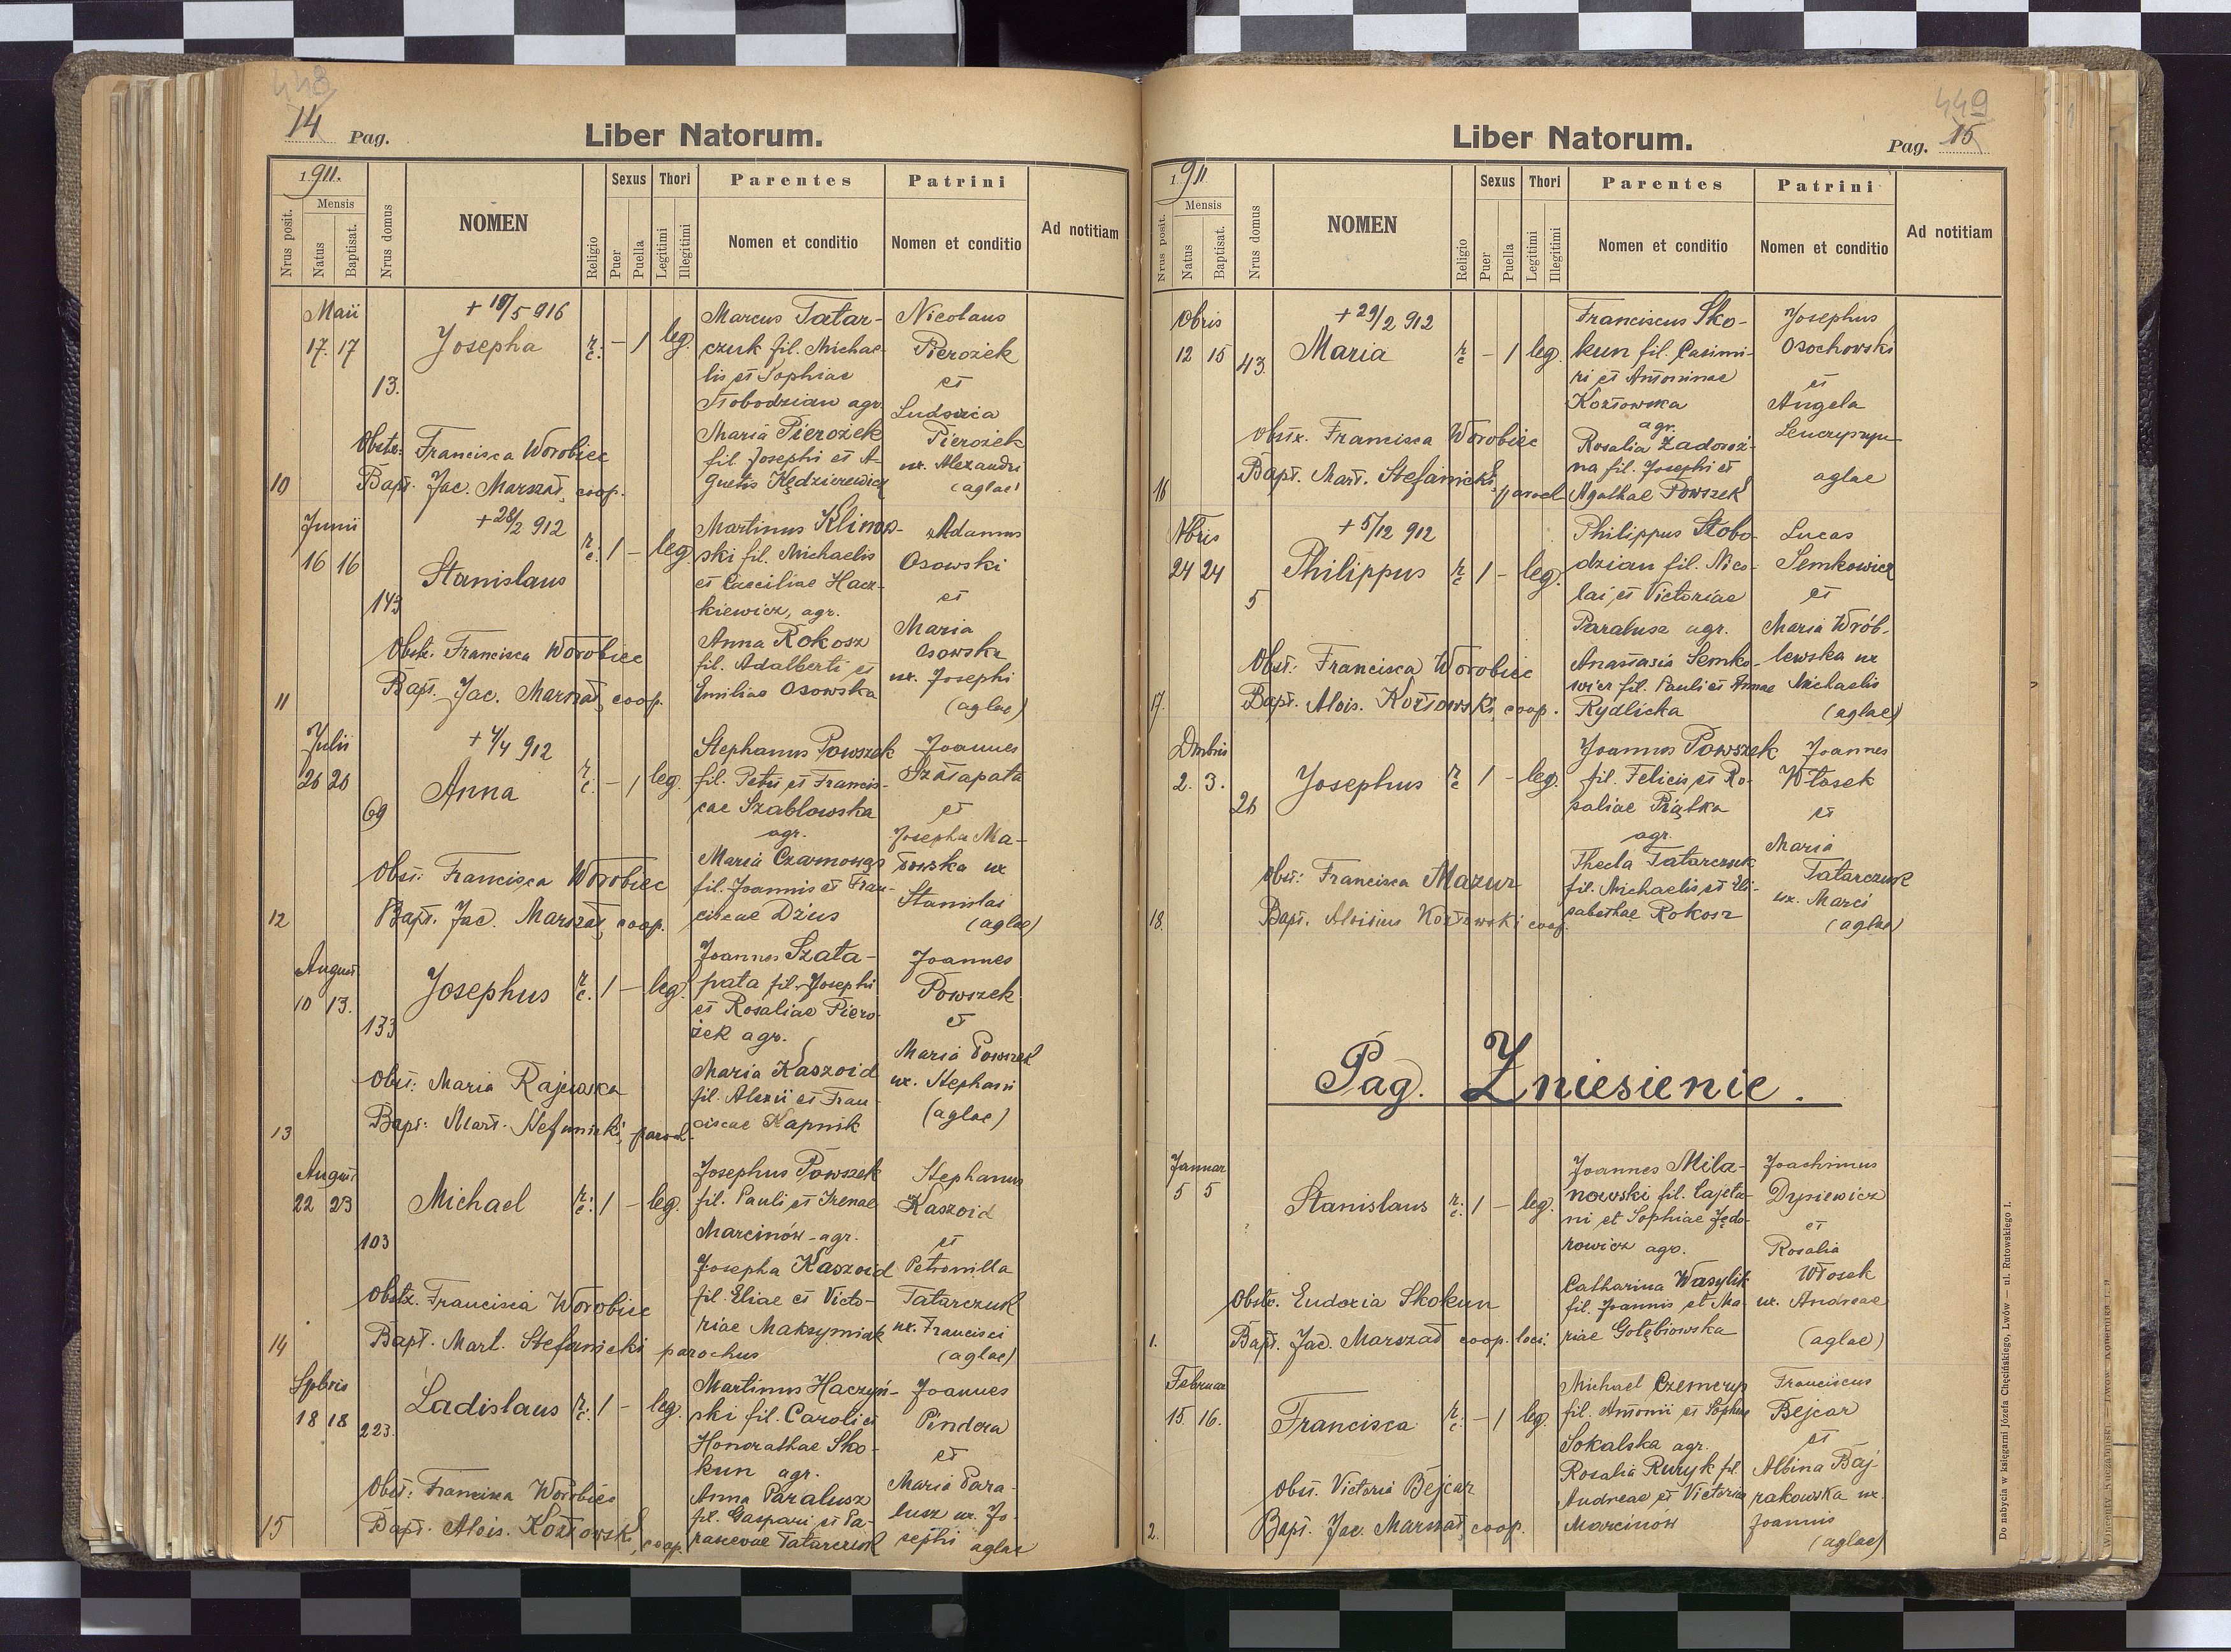 448
14 Pag.
Liber Natorum.
1911.
Nrus posit.
Mensis
Natus
Baptisat.
Nrus domus
NOMEN
Religio
Sexus
Puer
Puella
Thori
Legitimi
Illegitimi
Parentes
Nomen et conditio
Patrini
Nomen et conditio
Ad notitiam
Maii
17. 17
13.
+ 19/5 916
Josepha
r. c. – 1 leg.
Marcus Tatar-
czuk fil. Michae-
lis et Sophiae
Słobodzian agr.
Maria Pierożek
fil. Josephi et A-
gnetis Kędzierewicz
Nicolaus
Pierożek
et
Ludovica
Pierożek
ux. Alexandri
(aglae)
Obstr: Francisca Worobiec
10 Bapt. Jac. Marszał, coop.
Junii
16 16
143
+ 28/2 912
Stanislaus
r. c. 1 – leg.
Martinus Klimow-
ski fil. Michaelis
et Caeciliae Hacz-
kiewicz, agr.
Anna Rokosz
fil. Adalberti et
Emiliae Osowska
Adamus
Osowski
et
Maria
Osowska
ux. Josephi
(aglae)
Obstr. Francisca Worobiec
11 Bapt. Jac. Marszał, coop.
Julii
26 26
69
+ 4/4 912
Anna
r. c. – 1 leg.
Stephanus Powszek
fil. Petri et Francis-
cae Szablowska
agr.
Maria Czarnowąs
fil. Joannis et Fran-
ciscae Dzius
Joannes
Szałapata
et
Josepha Ma-
łowska ux
Stanislai
(aglae)
Obst: Francisca Worobiec
12 Bapt. Jac. Marszał, coop.
August
10 13.
133
Josephus
r. c. 1 – leg.
Joannes Szała-
pata fil. Josephi
et Rosaliae Piero-
żek agr.
Maria Kaszoid
fil. Alexii et Fran-
ciscae Kapnik
Joannes
Powszek
et
Maria Powszek
ux. Stephani
(aglae)
Obst: Maria Rajewska
13 Bapt: Mart. Stefanicki, paroch.
August
22 23
103
Michael
r. c. 1 – leg.
Josephus Powszek
fil. Pauli et Irenae
Marcinów – agr.
Josepha Kaszoid
fil. Eliae et Victo-
riae Maksymiak
Stephanus
Kaszoid
et
Petronilla
Tatarczuk
ux. Francisci
(aglae)
Obstr. Francisca Worobiec
14 Bapt. Mart. Stefanicki parochus
Spbris
18 18
223.
Ladislaus
r. c. 1 – leg.
Martinus Haczyń-
ski fil. Caroli et
Honorathae Sko-
kun agr.
Anna Paralusz
fil. Gaspari et Pa-
rascevae Tatarczuk
Joannes
Pindora
et
Maria Para-
lusz ux. Jo-
sephi aglae
Obst: Francisca Worobiec
15 Bapt. Alois. Kozłowski, coop.
449
Pag. 15
Liber Natorum.
1911
Nrus posit.
Mensis
Natus
Baptisat.
Nrus domus
NOMEN
Religio
Sexus
Puer
Puella
Thori
Legitimi
Illegitimi
Parentes
Nomen et conditio
Patrini
Nomen et conditio
Ad notitiam
Obris
12 15
43.
+ 29/2 912
Maria
r c – 1 leg.
Franciscus Sko-
kun fil. Casimi-
ri et Antoninae
Kozłowska
agr.
Rosalia Zadoroż-
na fil. Josephi et
Agathae Powszek
Josephus
Osochowski
et
Angela
aglae
Obstr. Francisca Worobiec
16 Bapt. Mart. Stefanicki, paroch
Nbris
24 24
5
+ 5/12 912
Philippus
r c 1 – leg.
Philippus Słobo-
dzian fil. Nico-
lai, et Victoriae
Paralusz agr.
Anastasia Semko-
wicz fil. Pauli et Annae
Rydlicka
Lucas
Semkowicz
et
Maria Wrób-
lewska ux
Michaelis
(aglae)
Obst: Francisca Worobiec
17. Bapt. Alois. Kozłowski, coop.
Dmbris
2. 3.
26
Josephus
r c 1 – leg.
Joannes Powszek
fil. Felicis et Ro-
saliae Piątka
agr.
Thecla Tatarczuk
fil. Michaelis et Eli-
sabethae Rokosz
Joannes
Włosek
et
Maria
Tatarczuk
ux. Marci
(aglae)
Obst: Francisca Mazur
18. Bapt. Aloisius Kozłowski coop.
Pag. Zniesienie.
Januar
5 5
Stanislaus
r. c. 1 – leg.
Joannes Mila-
nowski fil. Cajeta-
ni et Sophiae Fedo-
rowicz agr.
Catharina Wasylik
fil. Joannis et Ma-
riae Gołębiowska
Joachimus
Dysiewicz
et
Rosalia
Włosek
ux. Andreae
(aglae)
Obstr. Eudoxia Skokun
1. Bapt. Jac. Marszał coop. loci.
Februar
15. 16.
Francisca
r. c. – 1 leg.
Michael Czemerys
fil. Antonii et Sophiae
Sokalska agr.
Rosalia Ruryk fil.
Andreae et Victoriae
Marcinow
Franciscus
Bejcar
et
Albina Baj-
rakowska ux.
Joannis
(aglae)
Obst. Victoria Bejcar
2. Bapt. Jac. Marszał, coop.
Do nabycia w księgarni Józefa Chęcińskiego, Lwów — ul. Rutowskiego I.